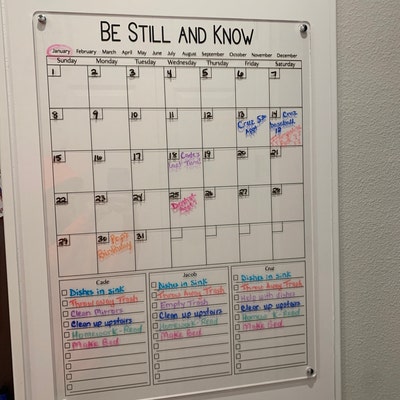 BE STILL AND KNOW
January February March April May June July August September October November December
Sunday Monday Tuesday Wednesday Thursday Friday Saturday
1 2 3 4 5 6 7
8 9 10 11 12 13 14
Cruz Cruz
15 16 17 18 19 20 21
Cade's
22 23 24 25 26 27 28
29 30 31
Birthday
Cade Jacob Cruz
Dishes in Sink Dishes in Sink Dishes in Sink
Throw Away Trash Throw Away Trash Throw Away Trash
Clean Mirrors Empty Trash Help with dishes
Clean up upstairs Clean up upstairs Clean up upstairs
Homework-Read Homework-Read Homework-Read
Make Bed Make Bed Make Bed